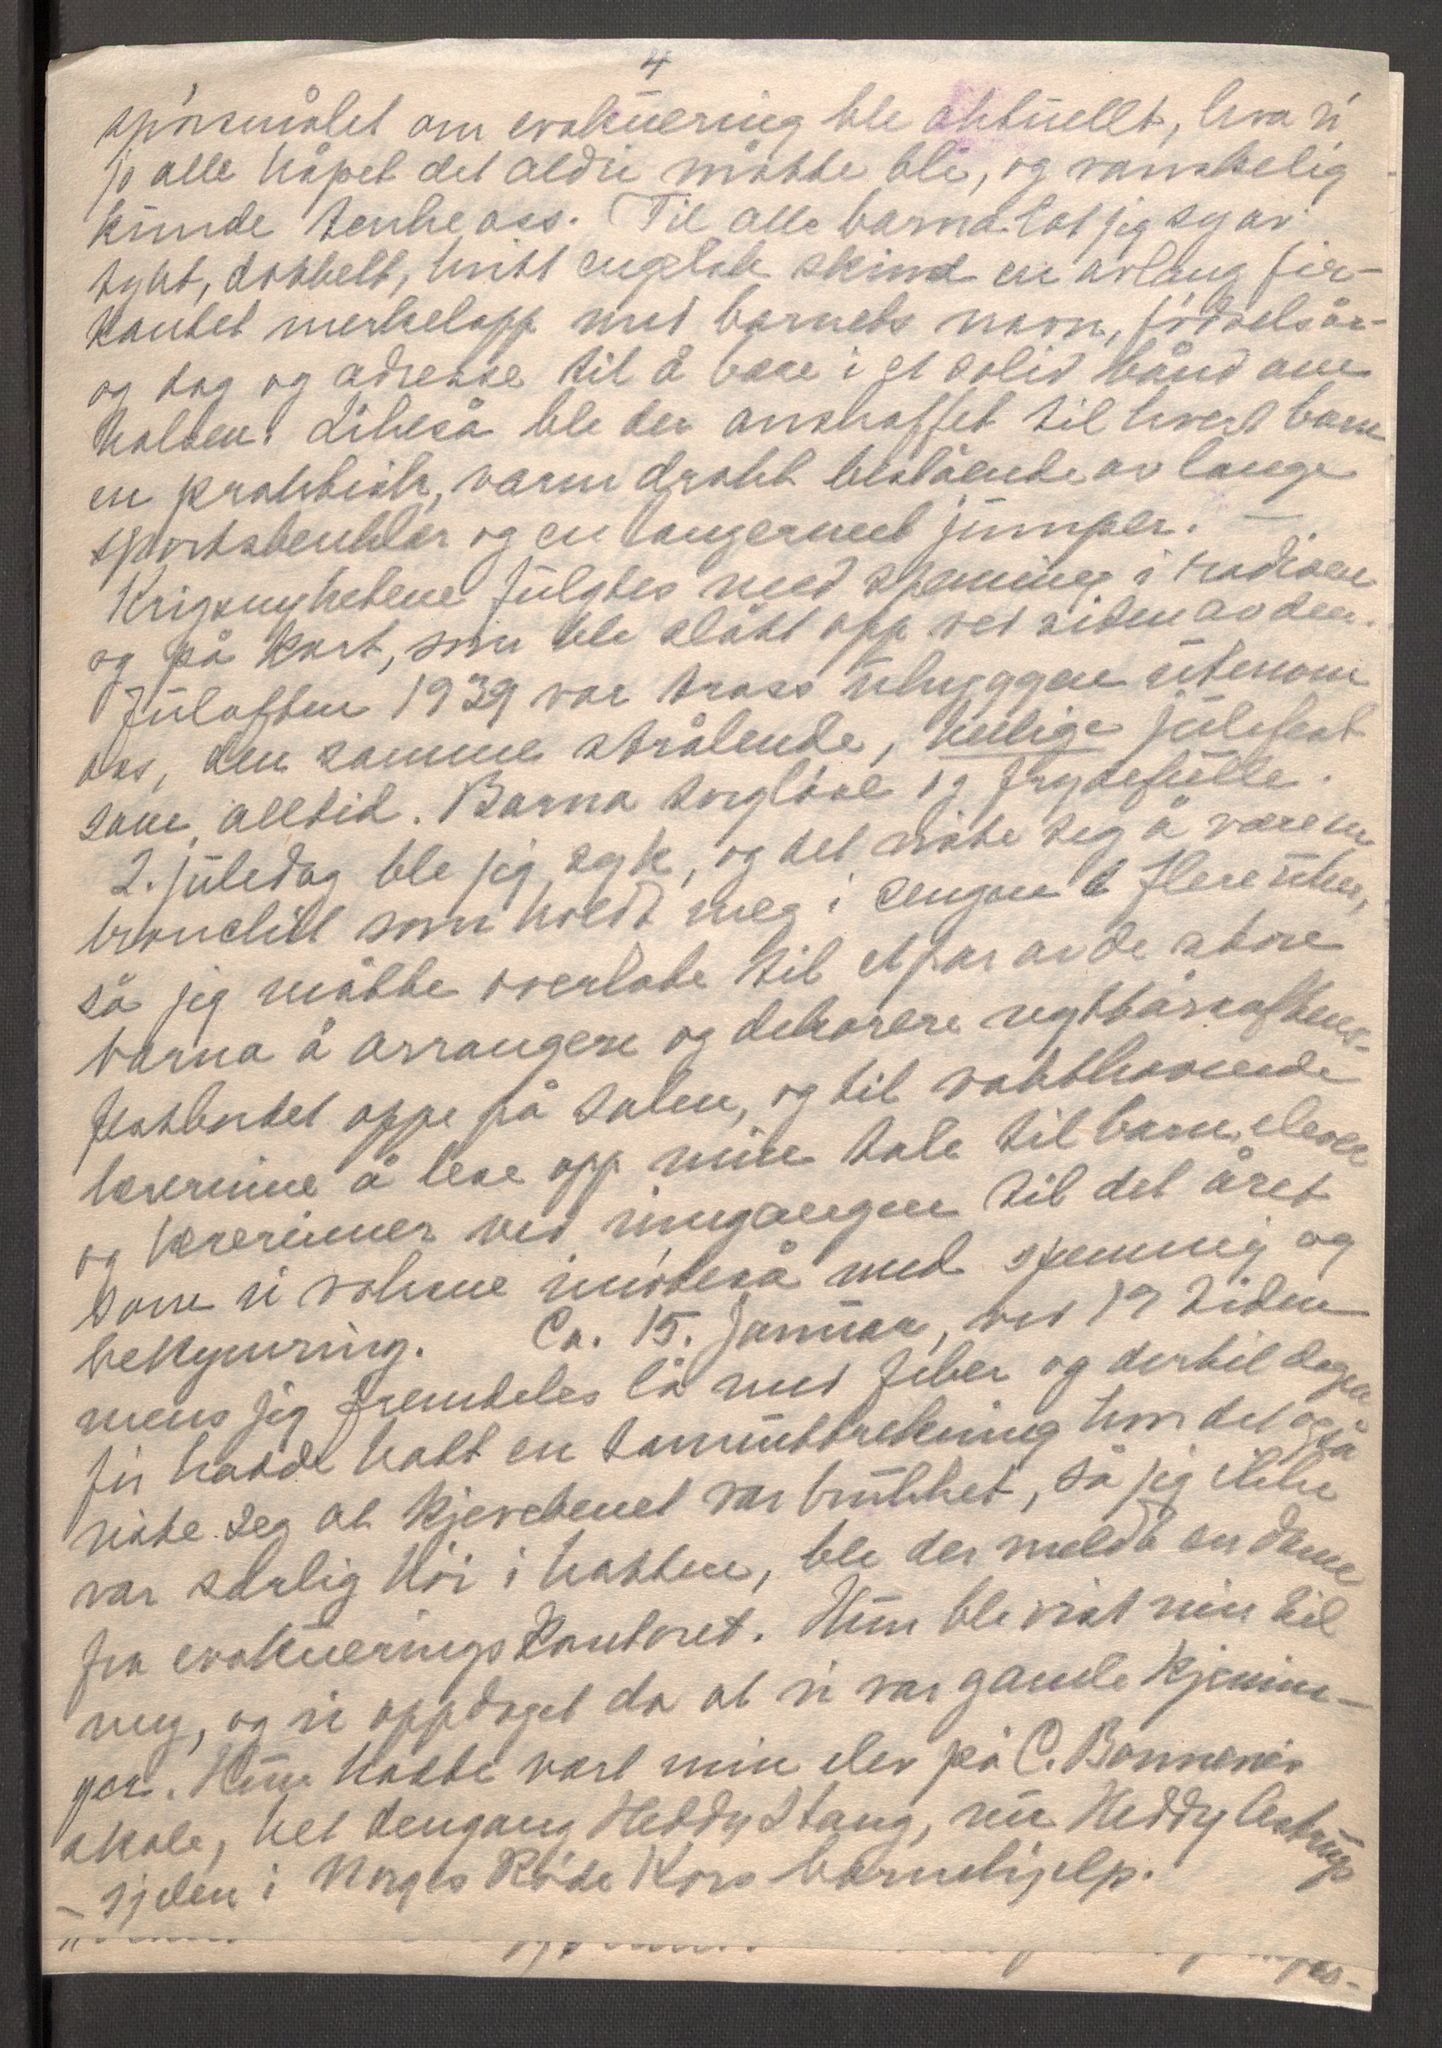 4
spörsmålet om evakuering ble aktuellt, hva vi
jo alle håpet det aldri måtte bli, og vanskelig
kunde tenke oss. Til alle barna lot jeg sy av
tykt, dobbelt, hvitt engelsk skind en avlang fir-
kantet merkelapp med barnets navn, födselsår-
og dag og adresse til å bære i et solid bånd om
halsen. Likeså ble der anskaffet til hvert barn
en praktisk, varm drakt bestående av lange
sportsbenklær og en langermet jumper. —
Krigsnyhetene fulgtes med spenning i radioen
og på kart, som ble slått opp ved siden av den.
Julaften 1939 var tross uhyggen utenom
oss, den samme strålende, hellige julefest
som alltid. Barna sorglöse og frydefulle.
2. juledag ble jeg syk, og det viste seg å være en
bronchitt som holdt meg i sengen i flere uker,
så jeg måtte overlate til et par av de store
barna å arrangere og dekorere nyttårsaftens-
festbordet oppe på salen, og til vakthavende
lærerinne å lese opp min tale til barn, elever
og lærerinner ved inngangen til det året
som vi voksne imöteså med spenning og
bekymring. Ca. 15. januar, ved 17 tiden
mens jeg fremdeles lå med feber og dertil dagen
för hadde hatt en tannuttrekning hvor det også
viste seg at kjevebenet var brukket, så jeg ikke
var særlig höi i hatten, ble der meldt en dame
fra evakueringskontoret. Hun ble vist inn til
meg, og vi oppdaget da at vi var gamle kjennin-
ger. Hun hadde vært min elev på C. Bonnevies
skole, het dengang Heddy Stang, nu Heddy Astrup
– sjelen i Norges Röde Kors barnehjelp.